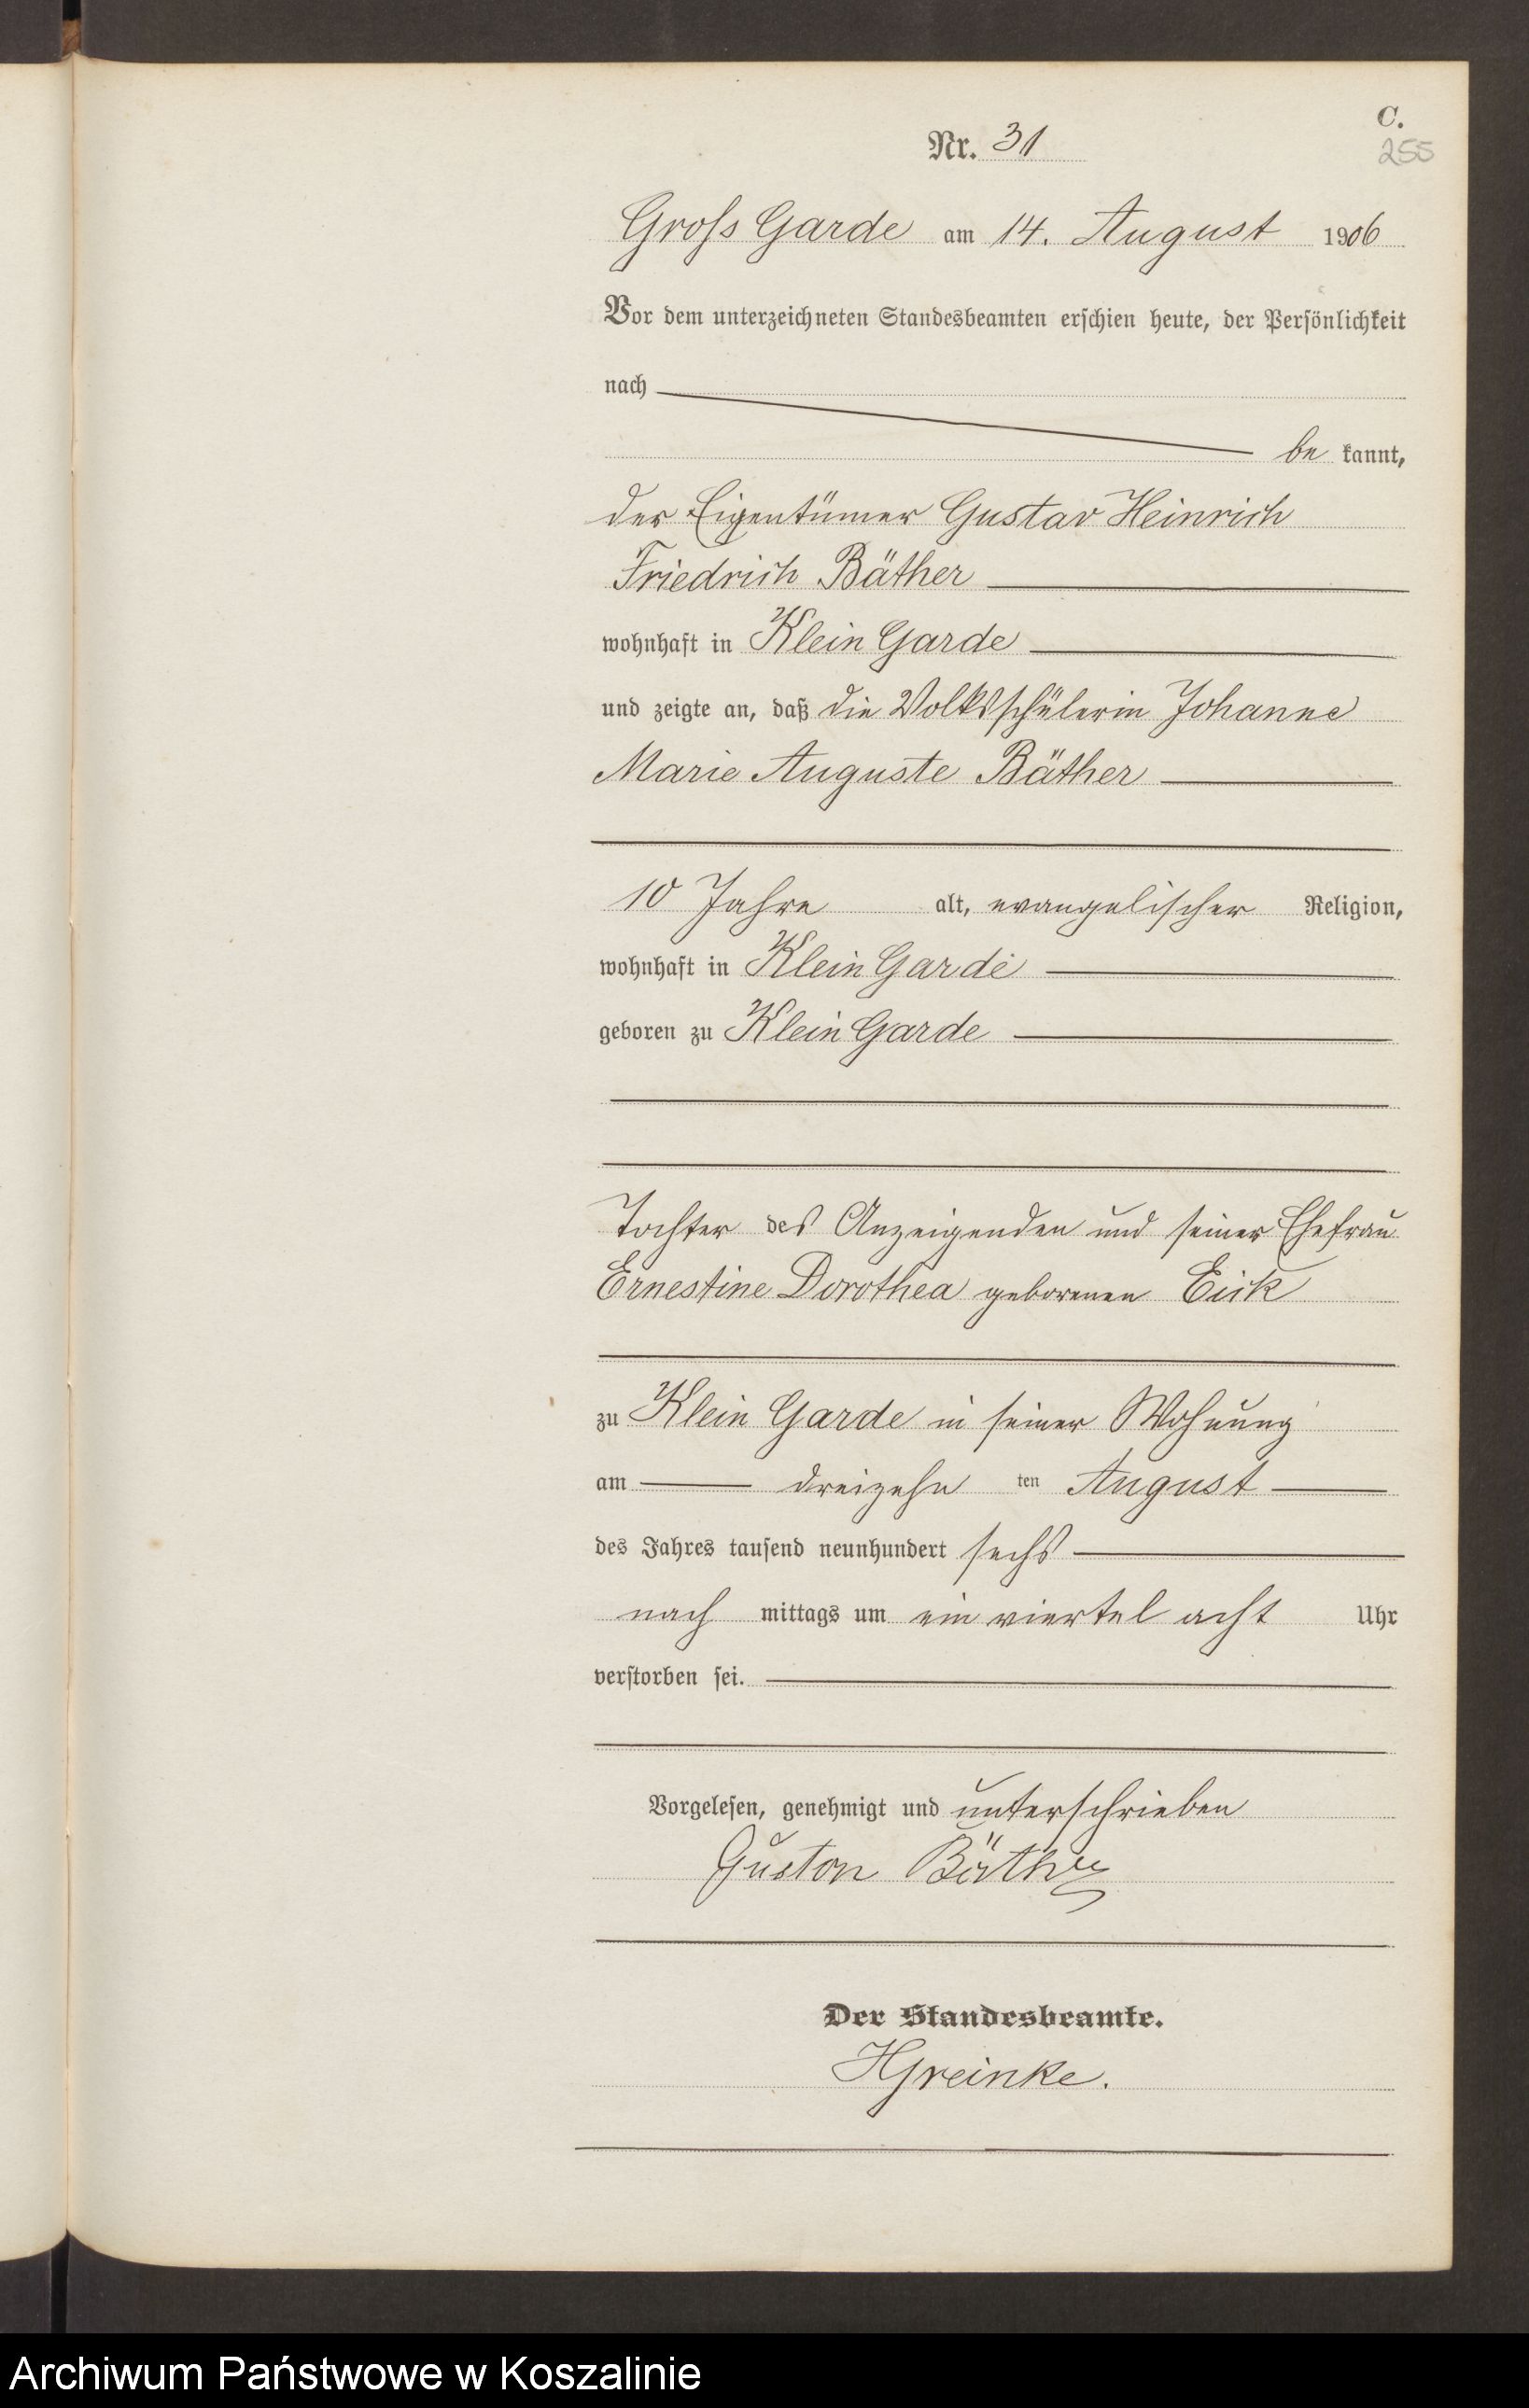 C.
Nr. 31
255
Groſs Garde am 14. August 1906
Vor dem unterzeichneten Standesbeamten erſchien heute, der Perſönlichkeit
nach
be kannt,
der Eigentümer Gustav Heinrich
Friedrich Bäther
wohnhaft in Klein Garde
und zeigte an, daß die Volksſchülerin Johanne
Marie Auguste Bäther
10 Jahre alt, evangelischer Religion,
wohnhaft in Klein Garde
geboren zu Klein Garde
Tochter des Anzeigenden und seiner Ehefrau
Ernestine Dorothea geborenen Eick
zu Klein Garde in seiner Wohnung
am dreizehn ten August
des Jahres tauſend neunhundert sechs
nach mittags um ein viertel acht Uhr
verſtorben ſei.
Vorgeleſen, genehmigt und unterschrieben
Gustav Bäther
Der Standesbeamte.
HGreinke.
Archiwum Państwowe w Koszalinie